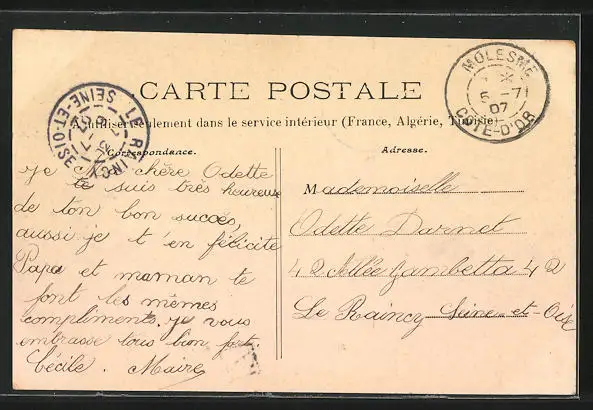 CARTE POSTALE
A utiliser seulement dans le service intérieur (France, Algérie, Tunisie)
Correspondance.
Adresse.
MOLESME
6 -7
07
COTE-D'OR
LE RAINCY
SEINE-ET-OISE
chère Odette
je te suis très heureuse
de ton bon succès
aussi je t'en félicite
Papa et maman te
font les mêmes
compliments. je vous
embrasse tous bien fort
Cécile. Maire
Mademoiselle
Odette Darnet
42 Allée Gambetta 42
Le Raincy Seine-et-Oise